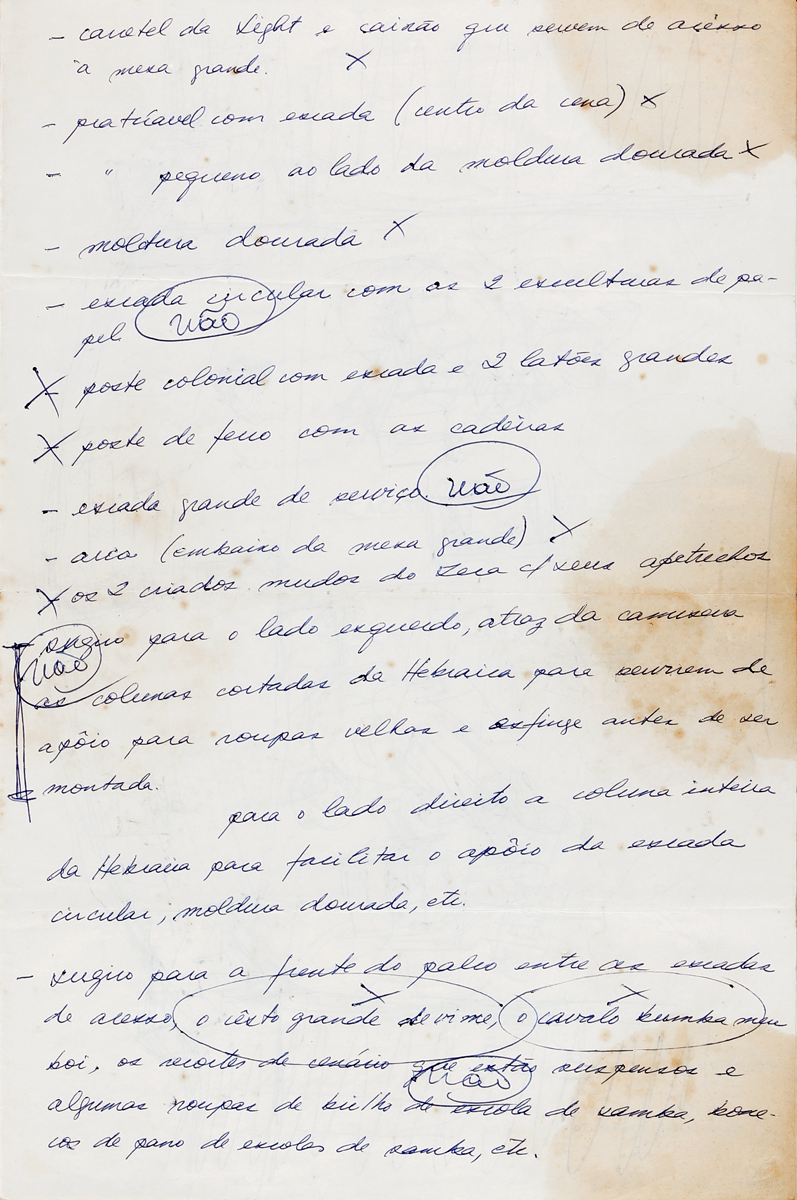 - carretel da Light e caixão que servem de acésso
à mesa grande. X
- praticável com escada (centro da cena) X
- " pequeno ao lado da moldura dourada X
- moldura dourada X
- escada circular com as 2 esculturas de pa-
pel. não
X poste colonial com escada e 2 latões grandes
X poste de ferro com as cadeiras
- escada grande de serviço. não
- arca (embaixo da mesa grande) X
X os 2 criados mudos do Zeca c/ seus apetrechos
- sugiro para o lado esquerdo, atraz da camiseira
não
as colunas cortadas da Hebraica para servirem de
apôio para roupas velhas e esfinge antes de ser
montada.
para o lado direito a coluna inteira
da Hebraica para facilitar o apôio da escada
circular, moldura dourada, etc.
- sugiro para a frente do palco entre as escadas
X X
de acesso, o cêsto grande de vime, o cavalo bumba meu
boi, os recortes de cenário que estão suspensos e
não
algumas roupas de brilho de escola de samba, bone-
cos de pano de escolas de samba, etc.